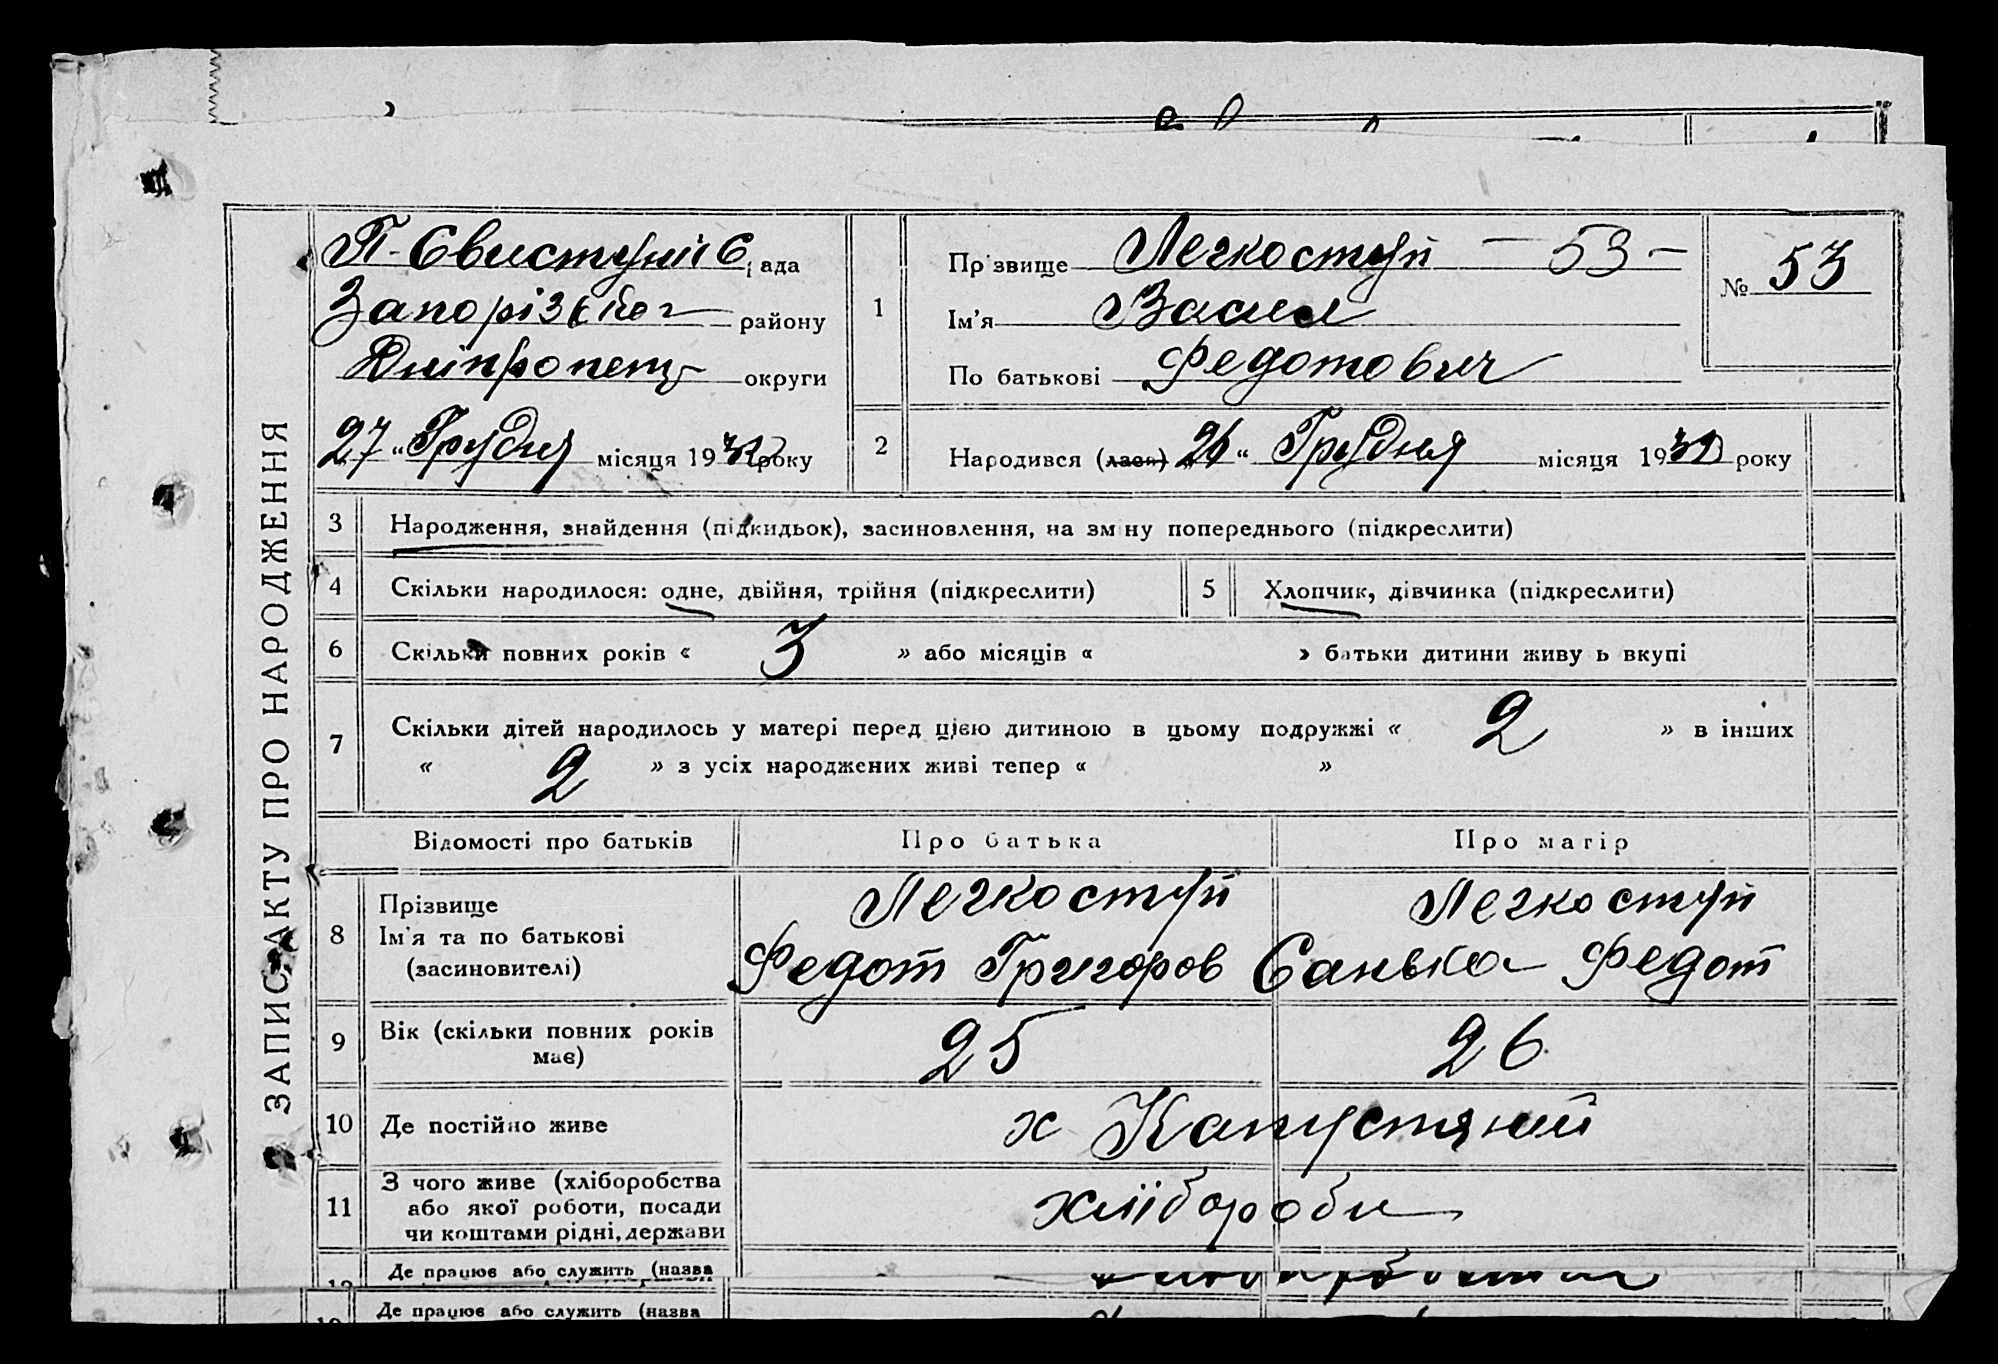 ЗАПИС АКТУ ПРО НАРОДЖЕННЯ
П-Свистунів С ада
Запорізьког району
Дніпропетр округи
27 „ Грудня місяця 1932 року
1 Прізвище Легкоступ — 53 —
Ім'я Васил
По батькові Федотович
№ 53
2 Народився (лася) 26 " Грудня місяця 1932 року
3 Народження, знайдення (підкидьок), засиновлення, на зміну попереднього (підкреслити)
4 Скільки народилося: одне, двійня, трійня (підкреслити) 5 Хлопчик, дівчинка (підкреслити)
6 Скільки повних років « 3 » або місяців « » батьки дитини живу ь вкупі
7 Скільки дітей народилось у матері перед цією дитиною в цьому подружжі « 2 » в інших
« 2 » з усіх народжених живі тепер « »
Відомості про батьків Про батька Про матір
8 Прізвище
Ім'я та по батькові
(засиновителі)
Легкоступ Легкоступ
Федот Григоров Санька Федот
9 Вік (скільки повних років має) 25 26
10 Де постійно живе х Капустяний
11 З чого живе (хліборобства
або якої роботи, посади
чи коштами рідні, держави
хлібороби
12 Де працює або служить (назва
Де працює або служить (назва